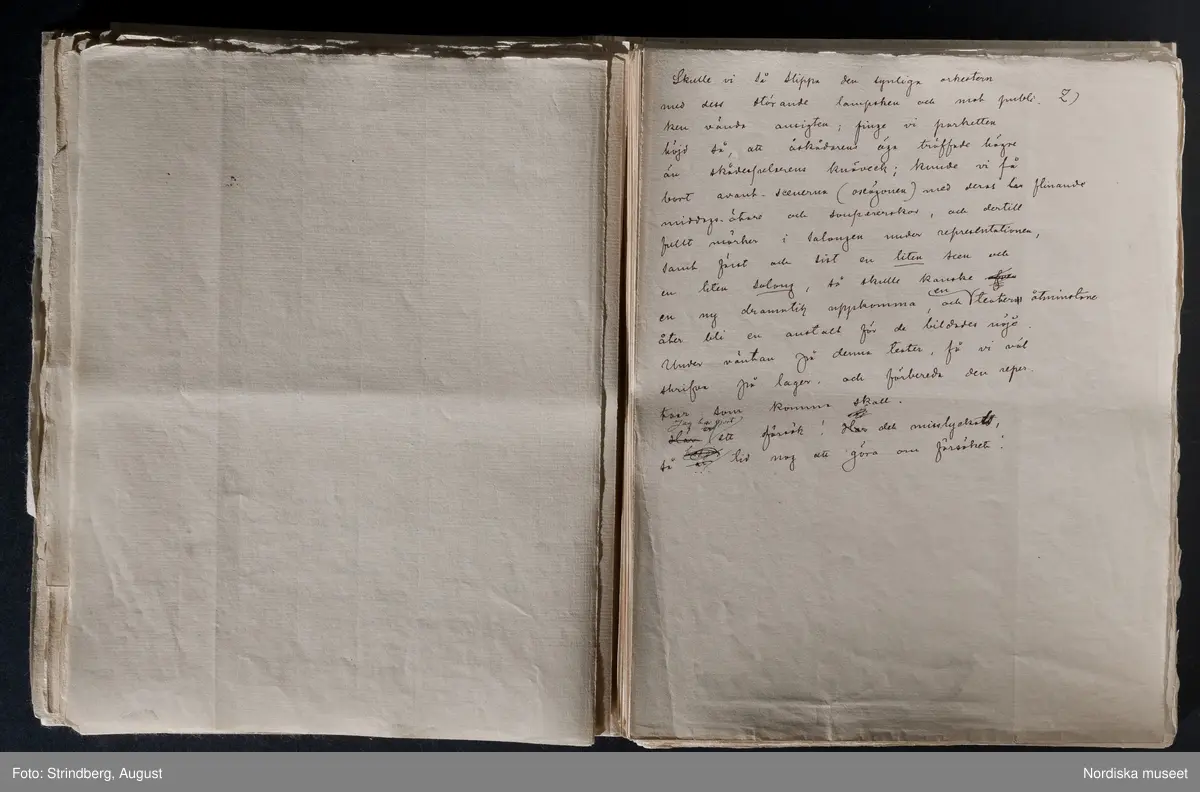 Skulle vi så slippa den synliga orkestern
med dess störande lampsken och mot publi- Z)
ken vända ansigten; finge vi parketten
höjd så, att åskådarens öga träffade högre
än skådespelarens knäveck; kunde vi få
bort avant-scenerna (oxögonen) med deras flinande
middags-ätare och soupererskor, och dertill
fullt mörker i salongen under representationen,
samt först och sist en liten scen och
en liten salong, så skulle kanske
en ny dramatik uppkomma, och en teater åtminstone
åter bli en anstalt för de bildades nöje.
Under väntan på denna teater, få vi väl
skrifva på lager, och förbereda den reper-
toar som komma skall.
Jag har gjort
ett försök! Har det misslyckats,
så tid nog att göra om försöket!
Foto: Strindberg, August
Nordiska museet